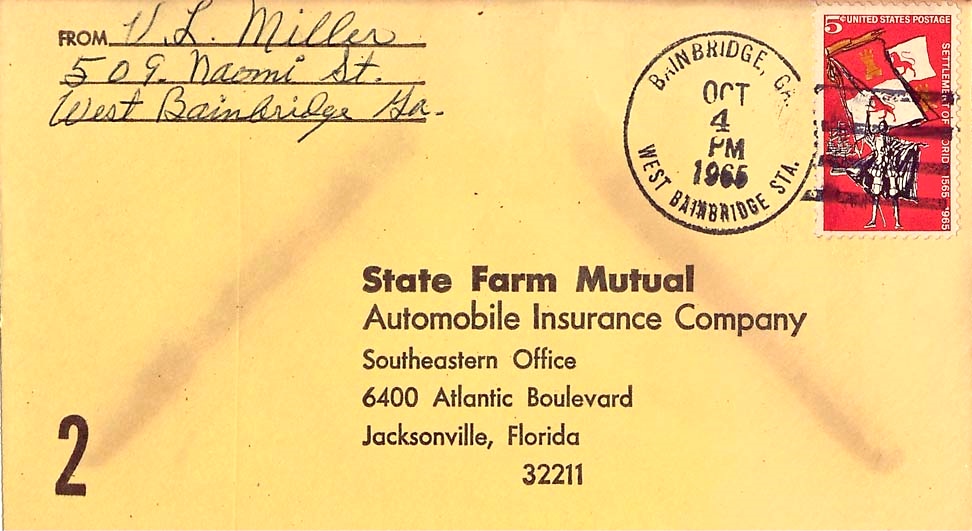 FROM V. L. Miller
509 Naomi St.
West Bainbridge Ga.
BAINBRIDGE, GA.
OCT
4
PM
1965
WEST BAINBRIDGE STA.
5¢ UNITED STATES POSTAGE
SETTLEMENT OF FLORIDA 1565-1965
State Farm Mutual
Automobile Insurance Company
Southeastern Office
6400 Atlantic Boulevard
Jacksonville, Florida
32211
2